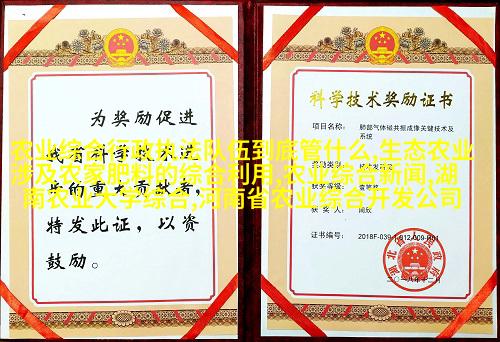 为奖励促进
我省科学技术进
步的重大贡献者，
特发此证，以资
鼓励。
科学技术奖励证书
肺部气体磁共振成像关键技术及
系统
奖励类别：
获奖等级：
获 奖 人：
证书编号：
湖北省人民政府
二〇一八年十二月
农业综合行政执法队伍到底管什么,生态农业
涉及农家肥料的综合利用,农业综合新闻,湖
南农业大学综合,河南省农业综合开发公司